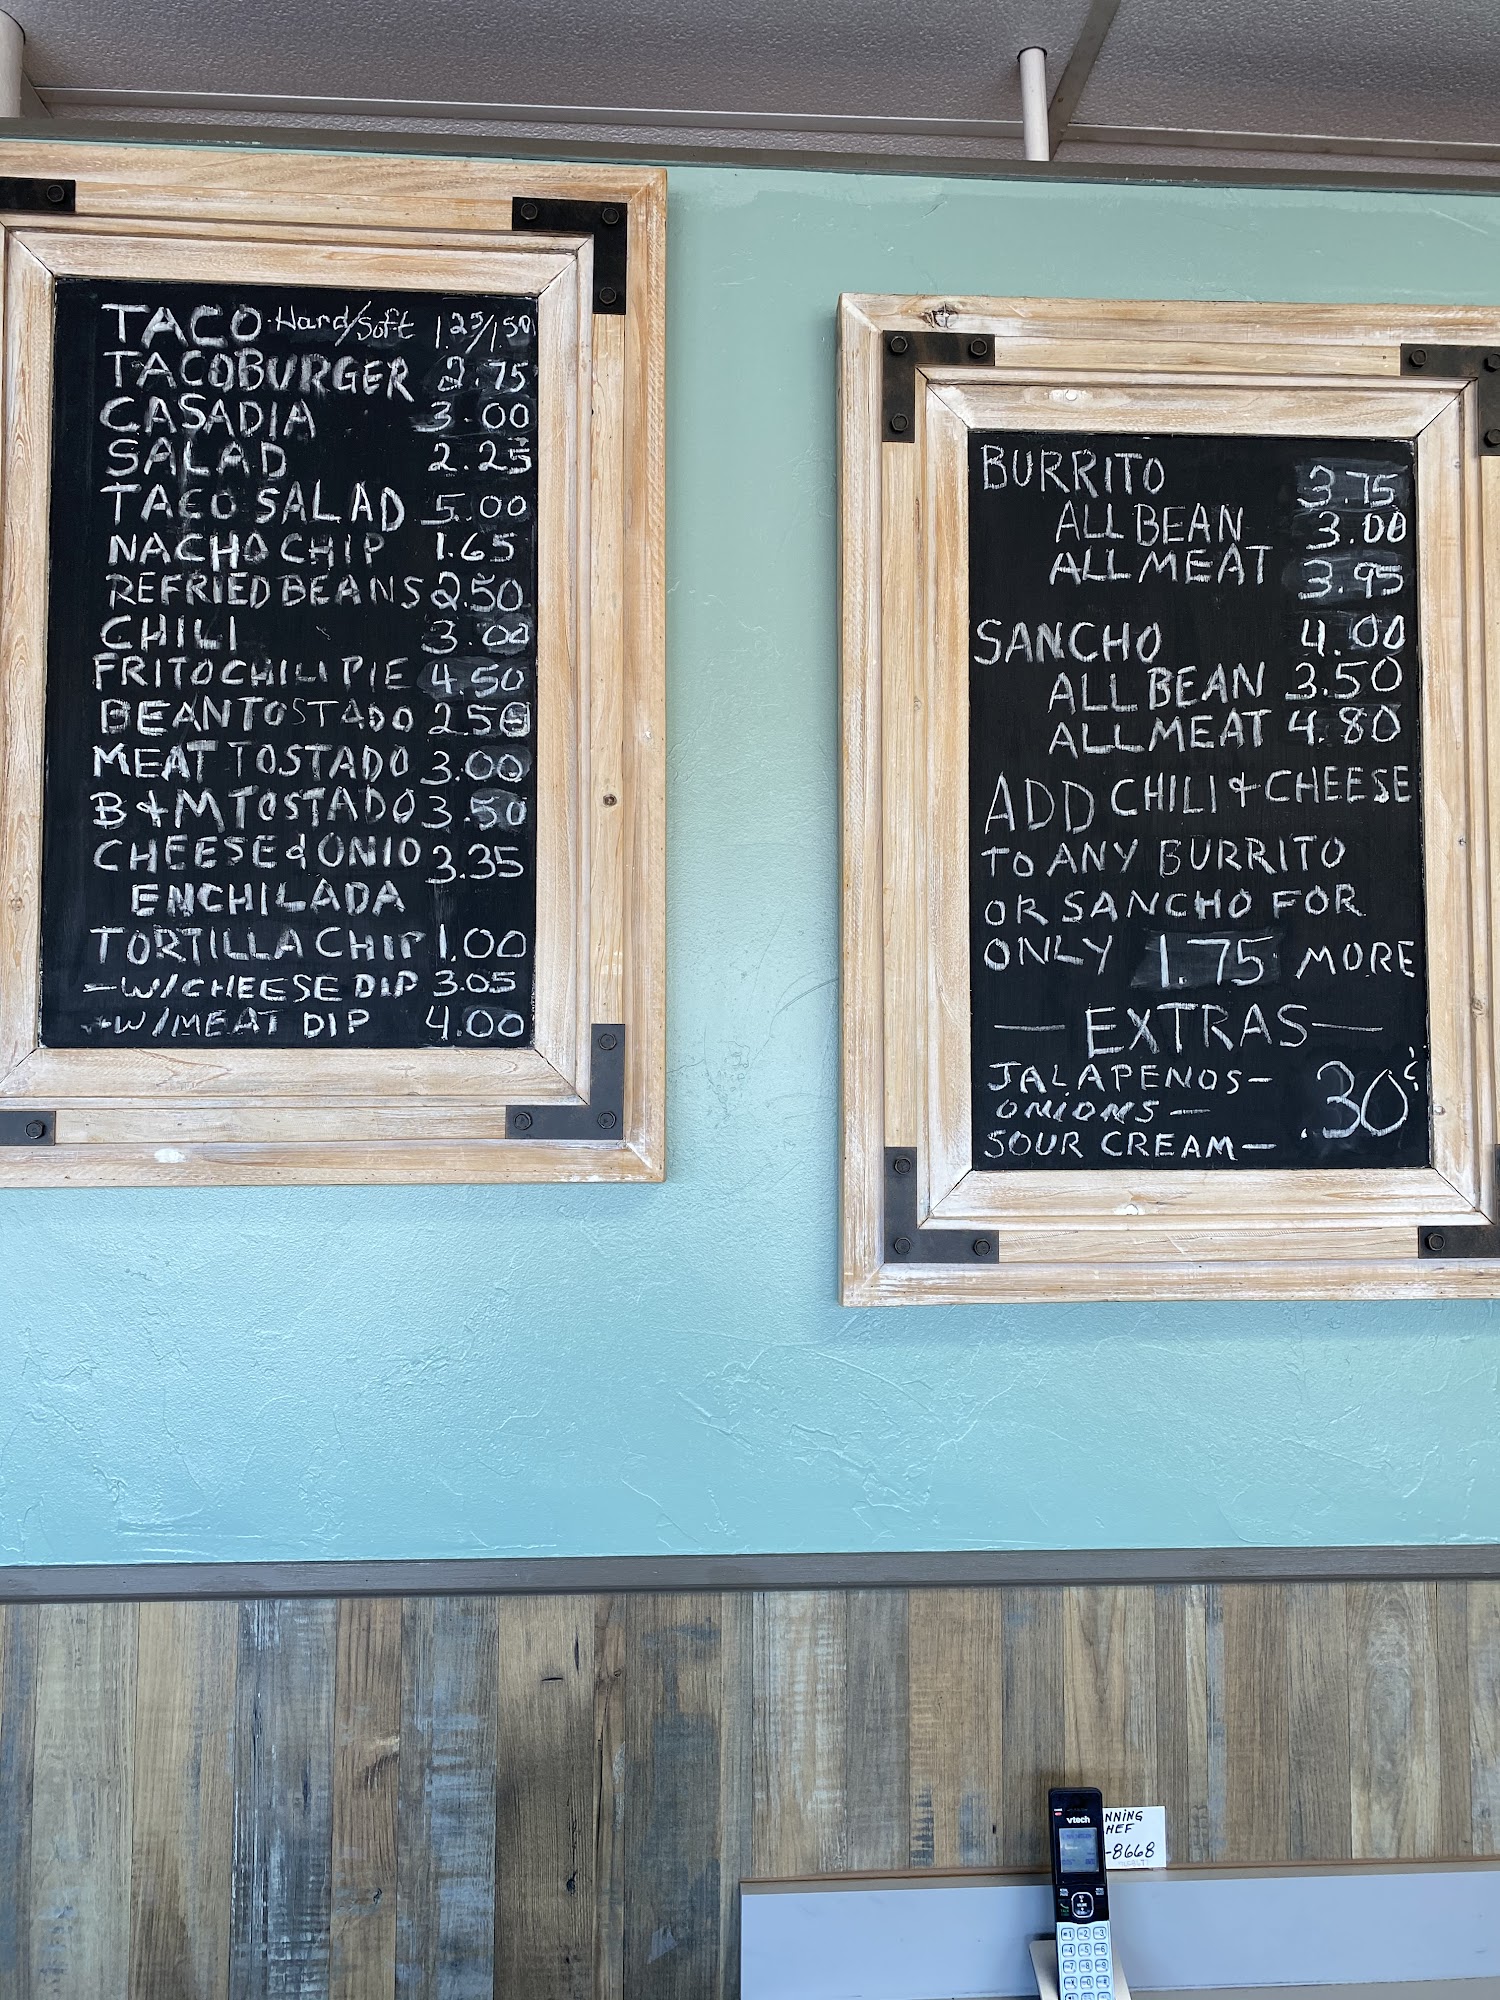 TACO Hard/Soft 1.25/1.50
TACOBURGER 2.75
CASADIA 3.00
SALAD 2.25
TACO SALAD 5.00
NACHO CHIP 1.65
REFRIED BEANS 2.50
CHILI 3.00
FRITO CHILI PIE 4.50
BEAN TOSTADO 2.50
MEAT TOSTADO 3.00
B & M TOSTADO 3.50
CHEESE & ONIO 3.35
ENCHILADA
TORTILLA CHIP 1.00
-W/CHEESE DIP 3.05
-W/MEAT DIP 4.00
BURRITO 3.75
ALL BEAN 3.00
ALL MEAT 3.95
SANCHO 4.00
ALL BEAN 3.50
ALL MEAT 4.80
ADD CHILI & CHEESE
TO ANY BURRITO
OR SANCHO FOR
ONLY 1.75 MORE
— EXTRAS —
JALAPENOS—
ONIONS — .30¢
SOUR CREAM—
vtech
NNING
HEF
-8668